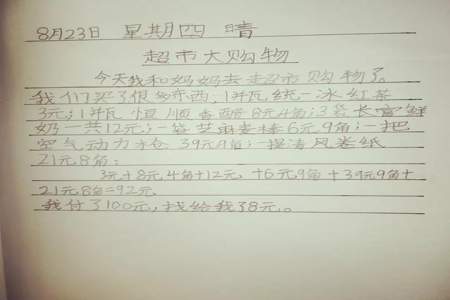 8月23日 星期四 晴
超市大购物
今天我和妈妈去超市购物了。
我们买了很多东西,1瓶统一冰红茶
3元;1瓶恒顺香醋8元4角;3袋长富鲜
奶一共12元;一袋芝麻麦棒6元9角;一把
空气动力枪 39元9角;一提清风卷纸
21元8角:
3元+8元4角+12元 +6元9角+39元9角+
21元8角=92元
我付了100元,找给我了8元。